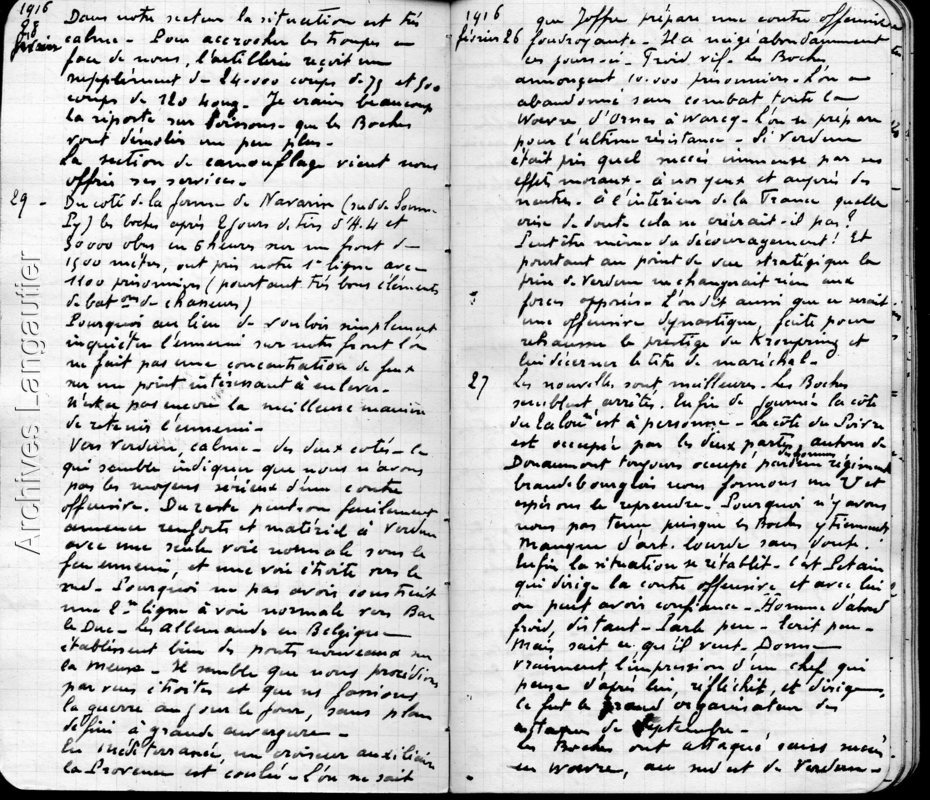 1916
28
février
Dans notre secteur la situation est très
calme - Pour accrocher les troupes en
face de nous, l'artillerie reçoit un
supplément de 24.000 coups de 75 et 500
coups de 120 long - Je crains beaucoup
la riposte sur Soissons - que les Boches
vont démolir un peu plus -
La section de camouflage vient nous
offrir ses services -
29 - Du côté de la ferme de Navarin (sud de Somme
Py) les boches après 2 jours de tirs d'A.L et
50000 obus en 6 heures sur un front de
1500 mètres, ont pris notre 1e ligne avec
1100 prisonniers (pourtant très bons éléments
de bat.ons de chasseurs)
Pourquoi au lieu de vouloir simplement
inquiéter l'ennemi sur notre front l'on
ne fait pas une concentration de feux
sur un point intéressant à enlever -
n'est ce pas encore la meilleure manière
de retenir l'ennemi -
Vers Verdun, calme - des deux cotés - ce
qui semble indiquer que nous n'avons
pas les moyens sérieux d'une contre
offensive. Du reste peut-on facilement
amener renforts et matériel à Verdun
avec une seule voie normale sous le
feu ennemi, et une voie étroite vers le
sud - Pourquoi ne pas avoir construit
une 2me ligne à voie normale vers Bar
le Duc - les Allemands en Belgique
établissent bien des ponts nouveaux sur
la Meuse - Il semble que nous procédions
par vues étroites et que ns fassions
la guerre au jour le jour, sans plan
défini à grande envergure -
En méditerranée, un croiseur auxiliaire
la Provence est coulé - L'on ne sait
1916
février 26
que Joffre prépare une contre offensive
foudroyante - Il a neigé abondamment
ces jours-ci - Froid vif - Les Boches
annonçent 10.000 prisonniers - L'on a
abandonné sans combat toute la
Woevre d'Ornes à Warcq - L'on se prépare
pour l'ultime résistance - Si Verdun
était pris quel succès immense par ses
effets moraux - à nos yeux et auprès des
neutres - à l'intérieur de la France quelle
crise de doute cela ne créerait-il pas?
Peut être même du découragement! Et
pourtant au point de vue stratégique la
prise de Verdun ne changerait rien aux
forces opposées - L'on dit aussi que ce serait
une offensive dynastique, faite pour
rehausser le prestige du Kronprinz et
lui décerner le titre de maréchal -
27
Les nouvelles sont meilleures - Les Boches
semblent arrêtés. En fin de journée la côte
du Talou est à personne - La côte du Poivre
est occupée par les deux partis, autour de
Douaumont toujours occupé, par des hommes d'un régiment
brandebourgeois nous formons un U et
espérons le reprendre - Pourquoi n'y avons
nous pas tenu puisque les Boches y tiennent
Manque d'art. lourde sans dout.
Enfin la situation se rétablit - C'est Pétain
qui dirige la contre offensive et avec lui
on peut avoir confiance - Homme d'abord
froid, distant - Parle peu - Ecrit peu -
Mais sait ce qu'il veut - Donne
vraiment l'impression d'un chef qui
pense d'après lui, réfléchit, et dirige,
ce fut le grand organisateur des
attaques de Septembre -
Les Boches ont attaqué, sans succès
en Woevre, au sud est de Verdun -
Archives Langautier